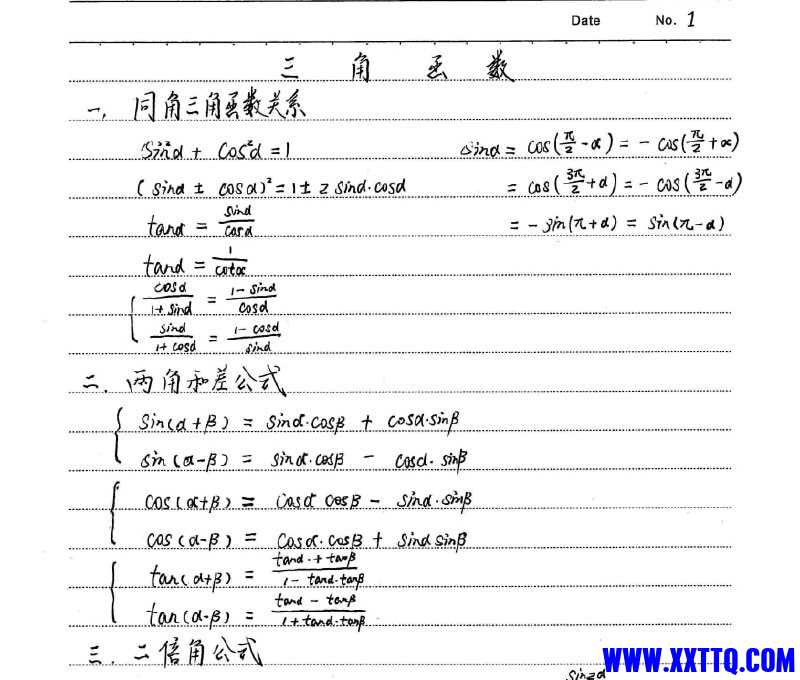 Date No. 1
三角函数
一、同角三角函数关系
sin²α + cos²α = 1
(sinα ± cosα)² = 1 ± 2 sinα·cosα
tanα = sinα/cosα
tanα = 1/cotα
cosα/(1+sinα) = (1-sinα)/cosα
sinα/(1+cosα) = (1-cosα)/sinα
sinα = cos(π/2 - α) = - cos(π/2 + α)
= cos(3π/2 + α) = - cos(3π/2 - α)
= - sin(π+α) = sin(π-α)
二、两角和差公式
sin(α+β) = sinα·cosβ + cosα·sinβ
sin(α-β) = sinα·cosβ - cosα·sinβ
cos(α+β) = cosα cosβ - sinα·sinβ
cos(α-β) = cosα·cosβ + sinα sinβ
tan(α+β) = (tanα + tanβ)/(1 - tanα·tanβ)
tan(α-β) = (tanα - tanβ)/(1 + tanα·tanβ)
三、二倍角公式
sin2α
WWW.XXTTQ.COM